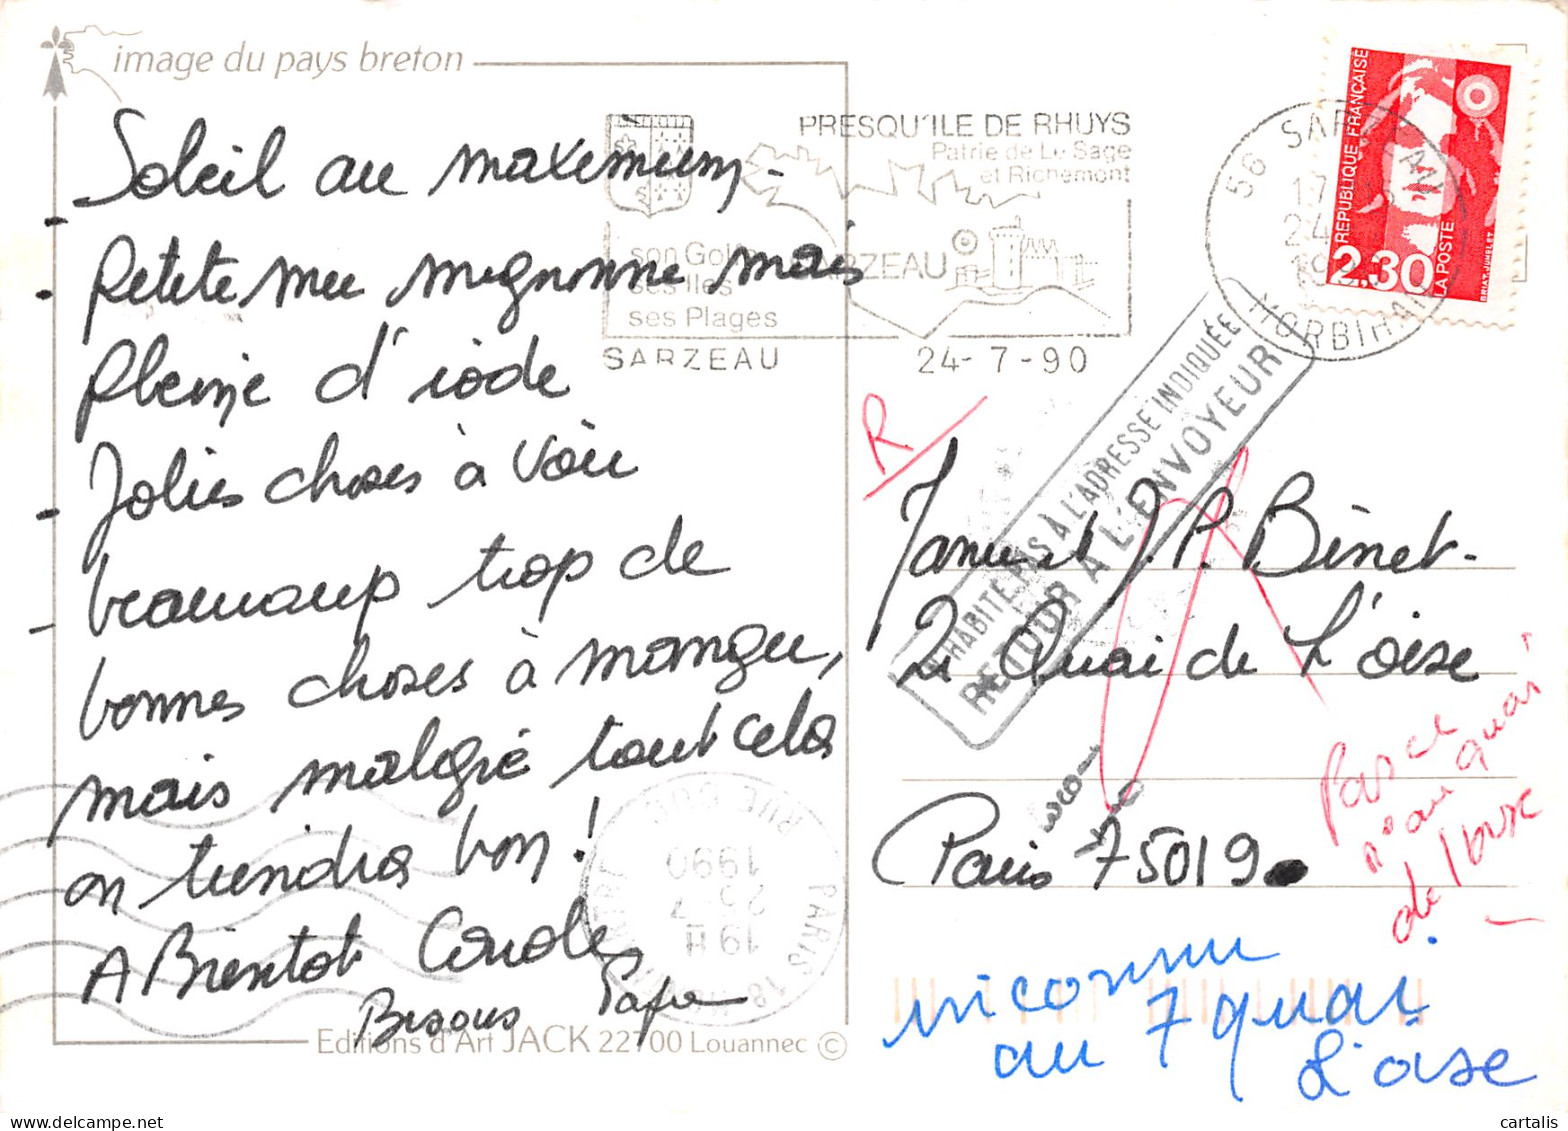 image du pays breton
Soleil au maximum -
- Petite mer mignonne mais
- pleine d'iode
Jolies choses à voir
- beaucoup trop de
- bonnes choses à manger,
mais malgré tout cela
on tiendra bon !
A Bientot Carole
Bisous Papa
Editions d'Art JACK 22700 Louannec ©
PRESQU'ILE DE RHUYS
Patrie de Le Sage
et Richemont
son Golfe
ses Iles
ses Plages
SARZEAU
SARZEAU
24-7-90
56 SARZEAU
17
24
19
MORBIHAN
REPUBLIQUE FRANÇAISE
2,30
LA POSTE
BRIAT. JUMELET
N'HABITE PAS À L'ADRESSE INDIQUÉE
RETOUR A L'ENVOYEUR
R
et J.P. Binet-
2 Quai de L'oise
Paris 75019
Pas ce
n° au quai
de l'oise
inconnu
au 7 quai
L'oise
PARIS 18
19 H
25-7
1990
cartalis